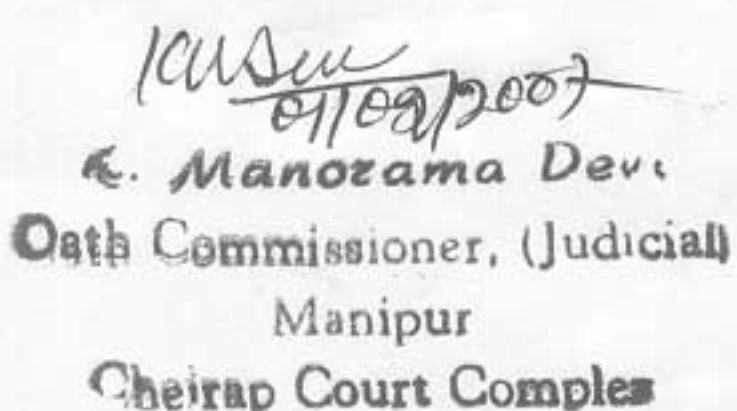 01/08/2007
K. Manorama Devi
Oath Commissioner, (Judicial)
Manipur
Cheirap Court Complex